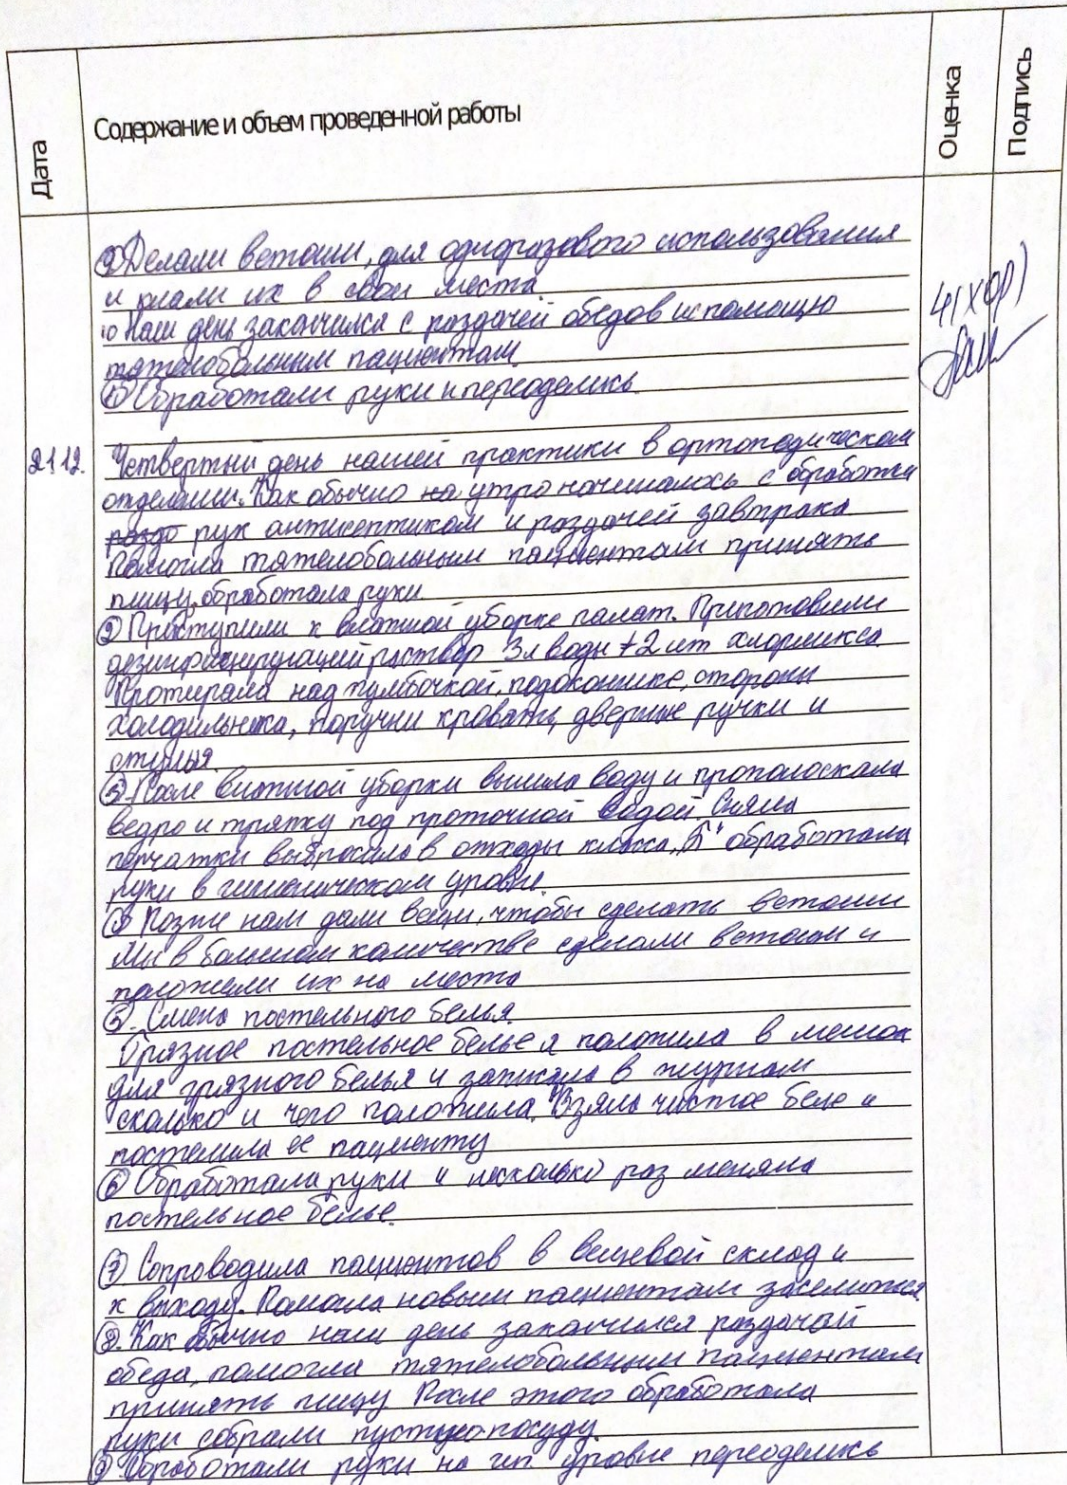 Дата
Содержание и объем проведенной работы
Оценка
Подпись
⑨ Делали ветоши, для одноразового использования
и клали их в свои места
10 Наш день закончился с раздачей обедов и с помощю
тяжелобольным пациентам.
⑪ Обработали руки и переоделись.
4 (хор)
21.12. Четвертый день нашей практики в ортопедическом
отделении. Как обычно на утро начиналось с обработки
раздо рук антисептиком и раздачей завтрака
Помогла тяжелобольным пациентам принять
пищу, обработала руки.
② Приступили к влажной уборке палат. Приготовили
дезинфицирующий раствор 3л воды + 2 шт хлормикса.
Протирала над тумбочкой, подоконнике, стороны
холодильника, поручни кровати, дверные ручки и
стулья.
③. После влажной уборки вылила воду и прополоскала
ведро и тряпку под проточной водой. Сняла
перчатки выбросила в отходы класса „Б" обработала
руки в гигиеническом уровне.
④ Позже нам дали вещи, чтобы сделать ветоши
Мы в большом количестве сделали ветоши и
положили их на места
⑤. Смена постельного белья.
Грязное постельное белье я положила в мешок
для грязного белья и записала в журнал
сколько и чего положила. Взяла чистое белье и
постелила ее пациенту
⑥ Обработала руки и несколько раз меняла
постельное белье.
⑦ Сопроводила пациентов в вещевой склад и
к выходу. Помогла новым пациентам заселиться.
⑧. Как обычно наш день закончился раздачой
обеда, помогла тяжелобольным пациентам
принять пищу После этого обработала
руки собрали пустую посуду.
⑨ Обработали руки на гиг уровне переоделись